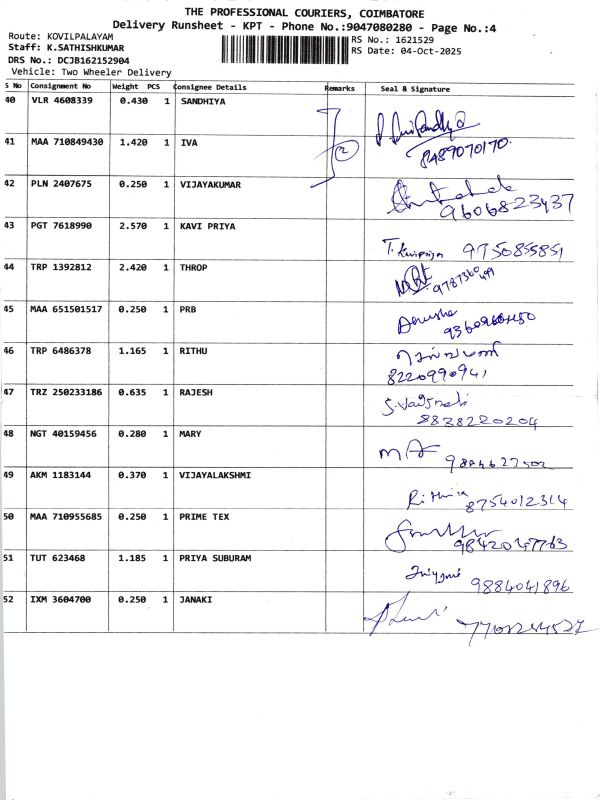 THE PROFESSIONAL COURIERS, COIMBATORE
Delivery Runsheet - KPT - Phone No.:9047080280 - Page No.:4
Route: KOVILPALAYAM
Staff: K.SATHISHKUMAR
DRS No.: DCJB162152904
Vehicle: Two Wheeler Delivery
RS No.: 1621529
RS Date: 04-Oct-2025
S No Consignment No Weight PCS Consignee Details Remarks Seal & Signature
40 VLR 4608339 0.430 1 SANDHIYA
41 MAA 710849430 1.420 1 IVA 2 8489070170.
42 PLN 2407675 0.250 1 VIJAYAKUMAR 9606823437
43 PGT 7618990 2.570 1 KAVI PRIYA 9750855851
44 TRP 1392812 2.420 1 THROP
45 MAA 651501517 0.250 1 PRB Anusha
46 TRP 6486378 1.165 1 RITHU
8220990941
47 TRZ 250233186 0.635 1 RAJESH
8838220204
48 NGT 40159456 0.280 1 MARY
49 AKM 1183144 0.370 1 VIJAYALAKSHMI Rithika 8754012314
50 MAA 710955685 0.250 1 PRIME TEX
9842047763
51 TUT 623468 1.185 1 PRIYA SUBURAM
9884041896
52 IXM 3604700 0.250 1 JANAKI